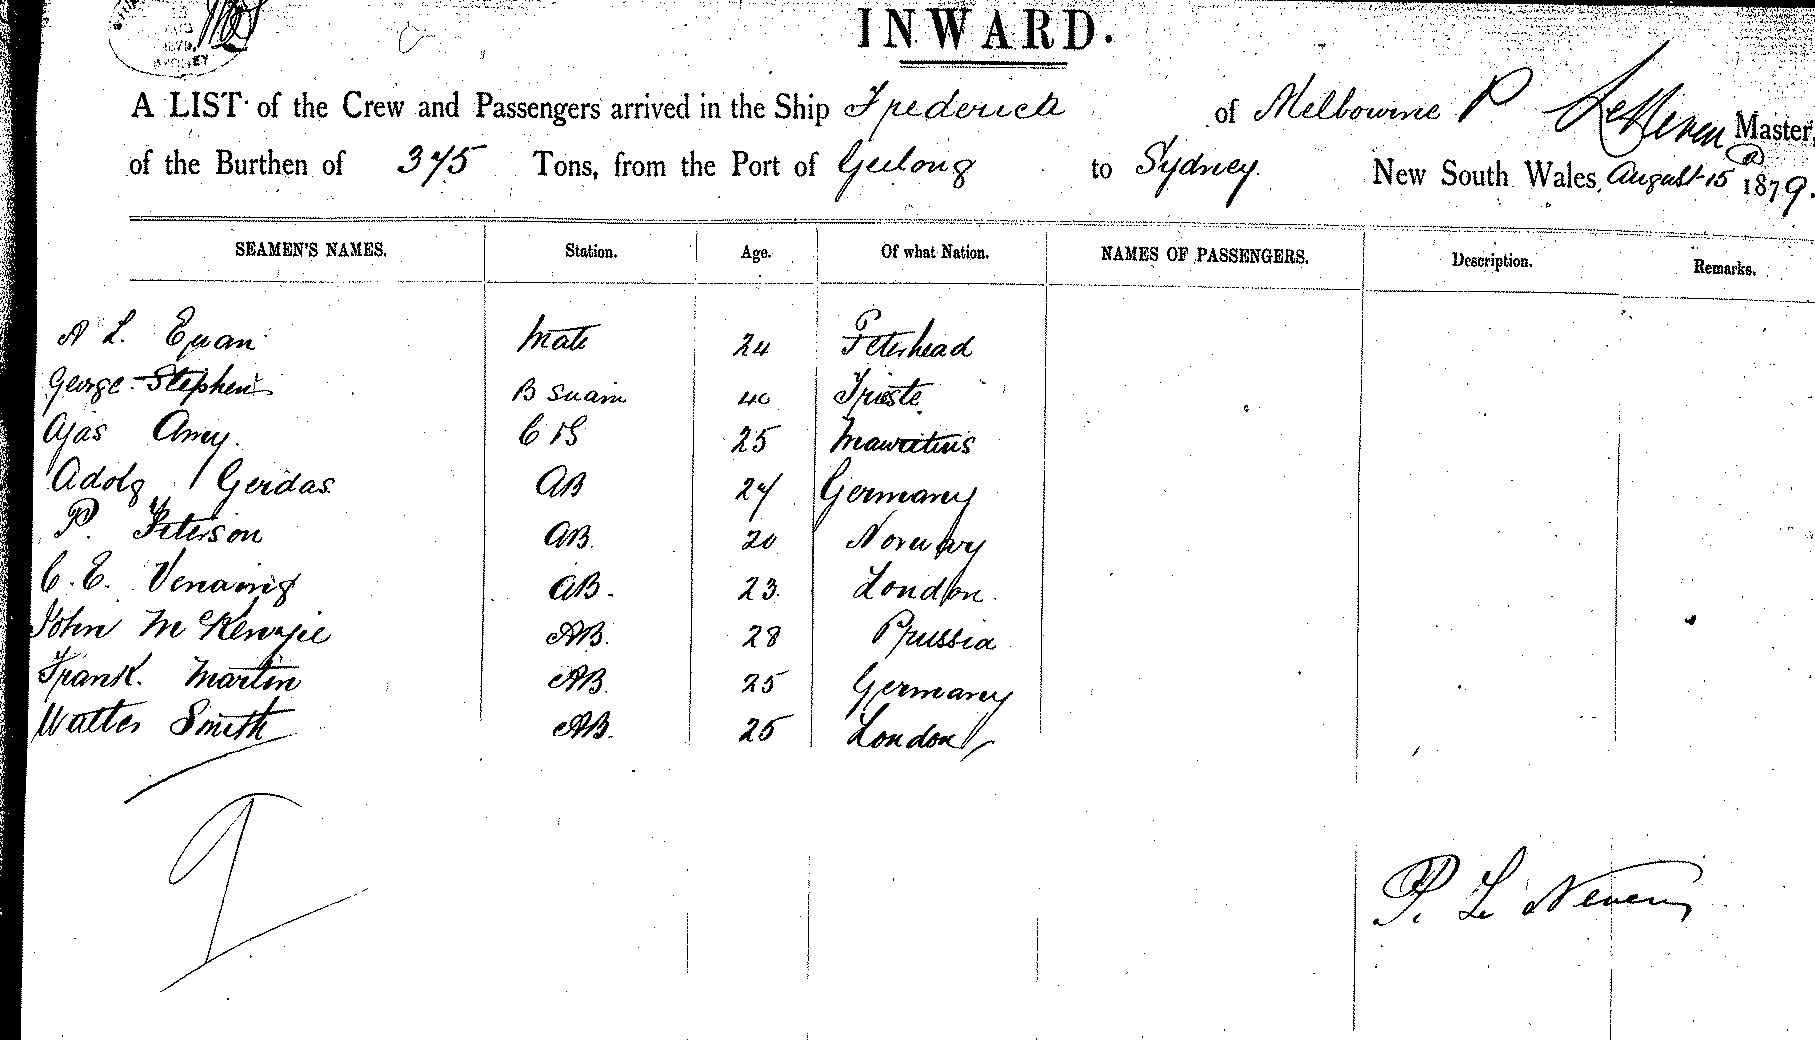 INWARD.
A LIST of the Crew and Passengers arrived in the Ship Frederick of Melbourne P Le Neven Master,
of the Burthen of 375 Tons, from the Port of Geelong to Sydney New South Wales, August 15 1879.
SEAMEN'S NAMES. Station. Age. Of what Nation. NAMES OF PASSENGERS. Description. Remarks.
A L. Mate 24 Peterhead
George Stephen B Suain 40 Trieste
Ajas Amy. C & S 25 Mauritius
Adolf Gerdas AB 27 Germany
P. Peterson AB. 20 Norway
C. E. AB. 23. London.
John McKenzie AB. 28 Prussia
Frank. Martin AB. 25 Germany
Walter Smith AB. 25 London
9
P. Le Neven